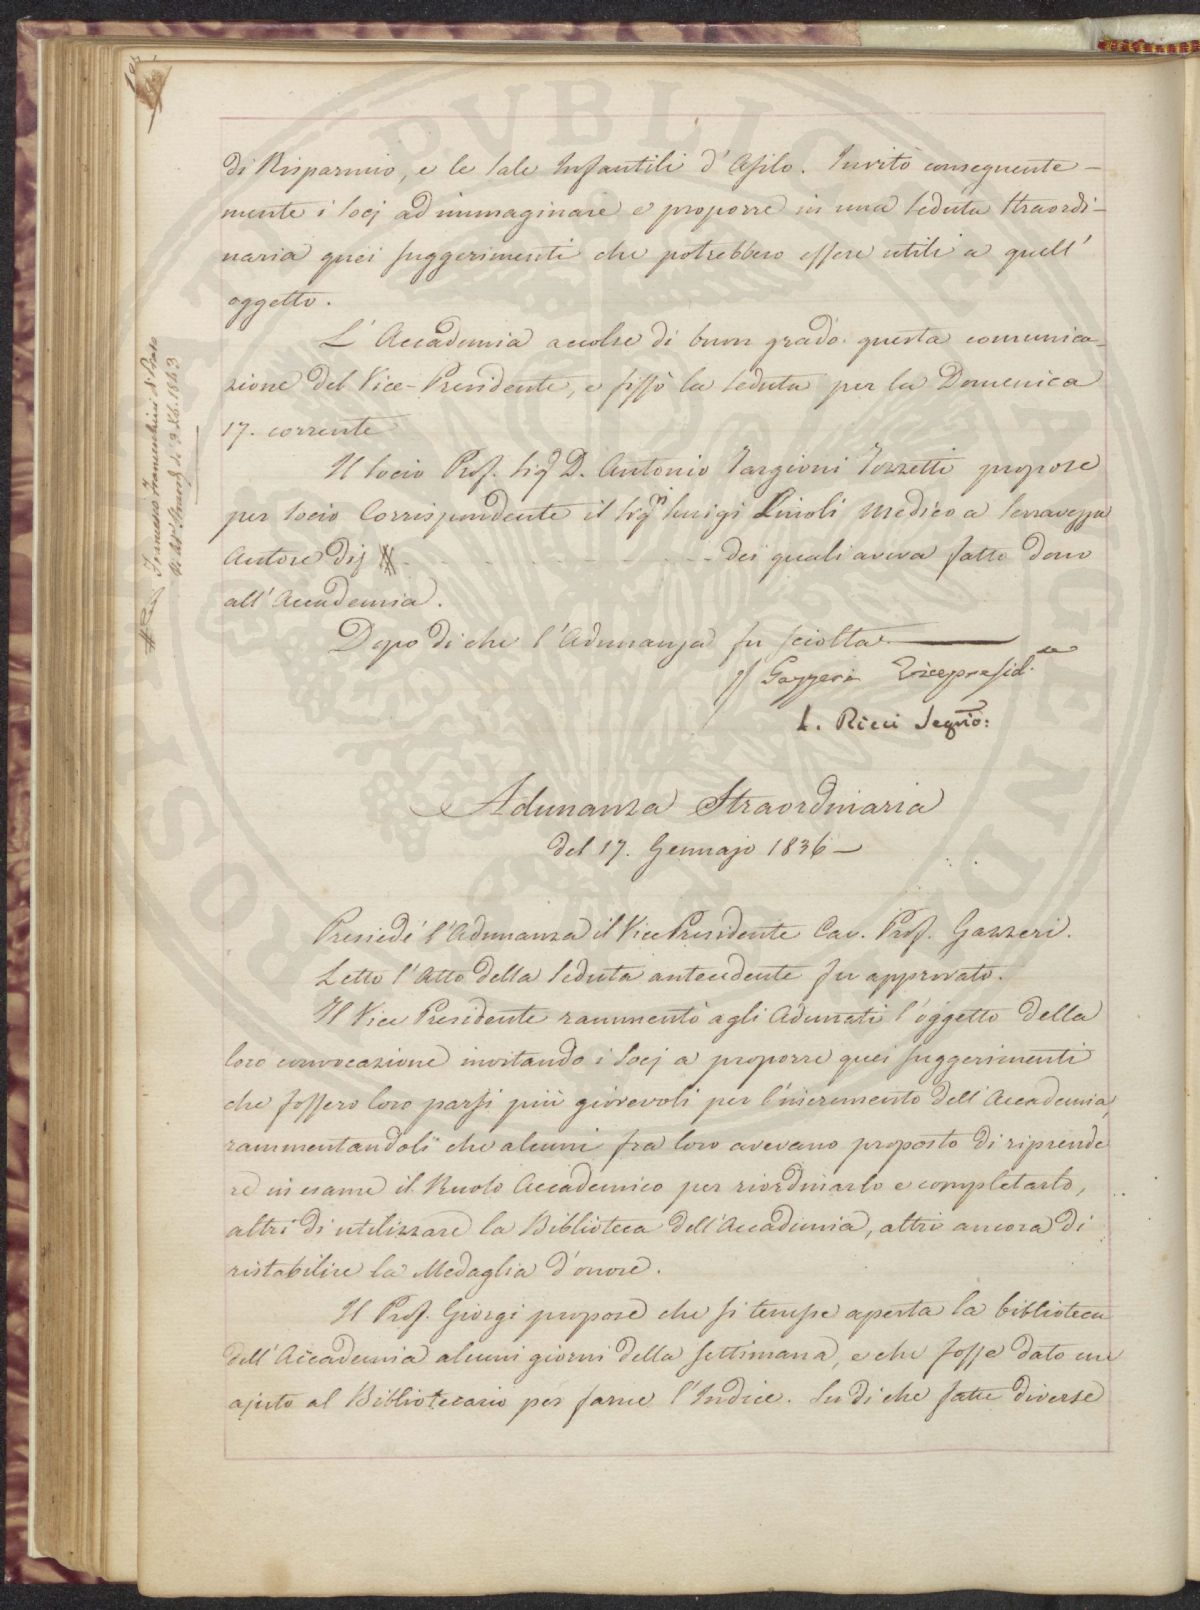 di Risparmio, e le Sale Infantili d'Asilo. Invitò conseguente-
mente i Socj ad immaginare e proporre in una Seduta Straordi-
naria quei suggerimenti che potrebbero essere utili a quell'
oggetto.
L'Accademia accolse di buon grado questa comunica-
zione del Vice-Presidente, e fissò la Seduta per la Domenica
17. corrente
Il Socio Prof. Sigr D. Antonio Targioni Tozzetti propose
per Socio Corrispondente il Sigr Luigi Linoli Medico a Serravezza
Autore di dei quali aveva fatto dono
all'Accademia.
Dopo di che l'Adunanza fu sciolta.
Gazzeri Vicepresid.te
L. Ricci Segrio:
Adunanza Straordinaria
del 17. Gennajo 1836 —
Presiedé l'Adunanza il Vice Presidente Cav. Prof. Gazzeri.
Letto l'Atto della Seduta antecedente fu approvato.
Il Vice Presidente rammentò agli Adunati l'oggetto della
loro convocazione invitando i Socj a proporre quei suggerimenti
che fossero loro parsi più giovevoli per l'incremento dell'Accademia,
rammentandoli che alcuni fra loro avevano proposto di riprende
re in esame il Ruolo Accademico per riordinarlo e completarlo,
altri di utilizzare la Biblioteca dell'Accademia, altri ancora di
ristabilire la Medaglia d'onore.
Il Prof. Giorgi propose che si tenesse aperta la biblioteca
dell'Accademia alcuni giorni della settimana, e che fosse dato un
ajuto al Bibliotecario per farne l'Indice. Su di che fatte diverse